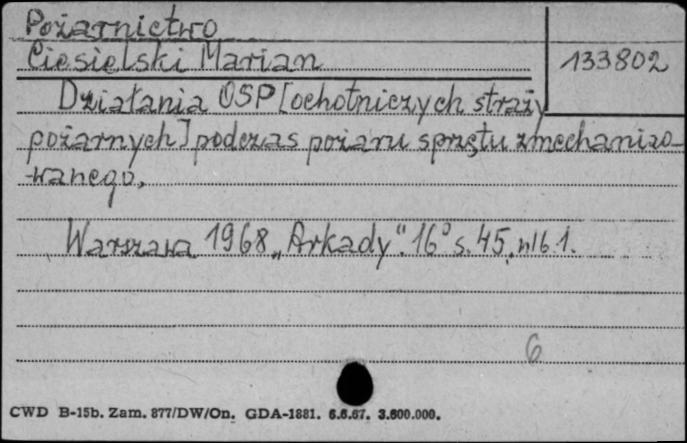 Pożarnictwo
Ciesielski Marian
133802
Działania OSP [ochotniczych straży
pożarnych] podczas pożaru sprzętu zmechanizo-
wanego.
Warszawa 1968 „Arkady". 16° s. 45, nlb. 1.
6
CWD B-15b. Zam. 877/DW/On. GDA-1881. 6.6.67. 3.600.000.